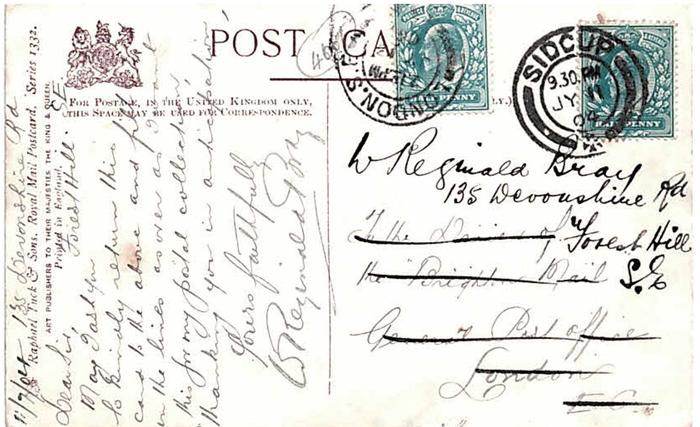 POST CA
FOR POSTAGE, IN THE UNITED KINGDOM ONLY,
THIS SPACE MAY BE USED FOR CORRESPONDENCE.
LY.)
Raphael Tuck & Sons, Royal Mail Postcard, Series 1332.
ART PUBLISHERS TO THEIR MAJESTIES THE KING & QUEEN.
Printed in England.
LONDON. S.E
PENNY
SIDCUP
9.30.PM
JY 11
04
HALFPENNY
W Reginald Bray
135 Devonshire Rd
To the Driver of
Forest Hill
the "Brighton Mail
S.E
General Post office
London
E.C.
11/7/04 135 Devonshire Rd
Forest Hill. SE
Dear Sir
May I ask you
to kindly return this p.
card to the above and fill
in the lines as over as I want
this for my postal collection
thanking you in anticipation
Yours faithfully
W Reginald Bray